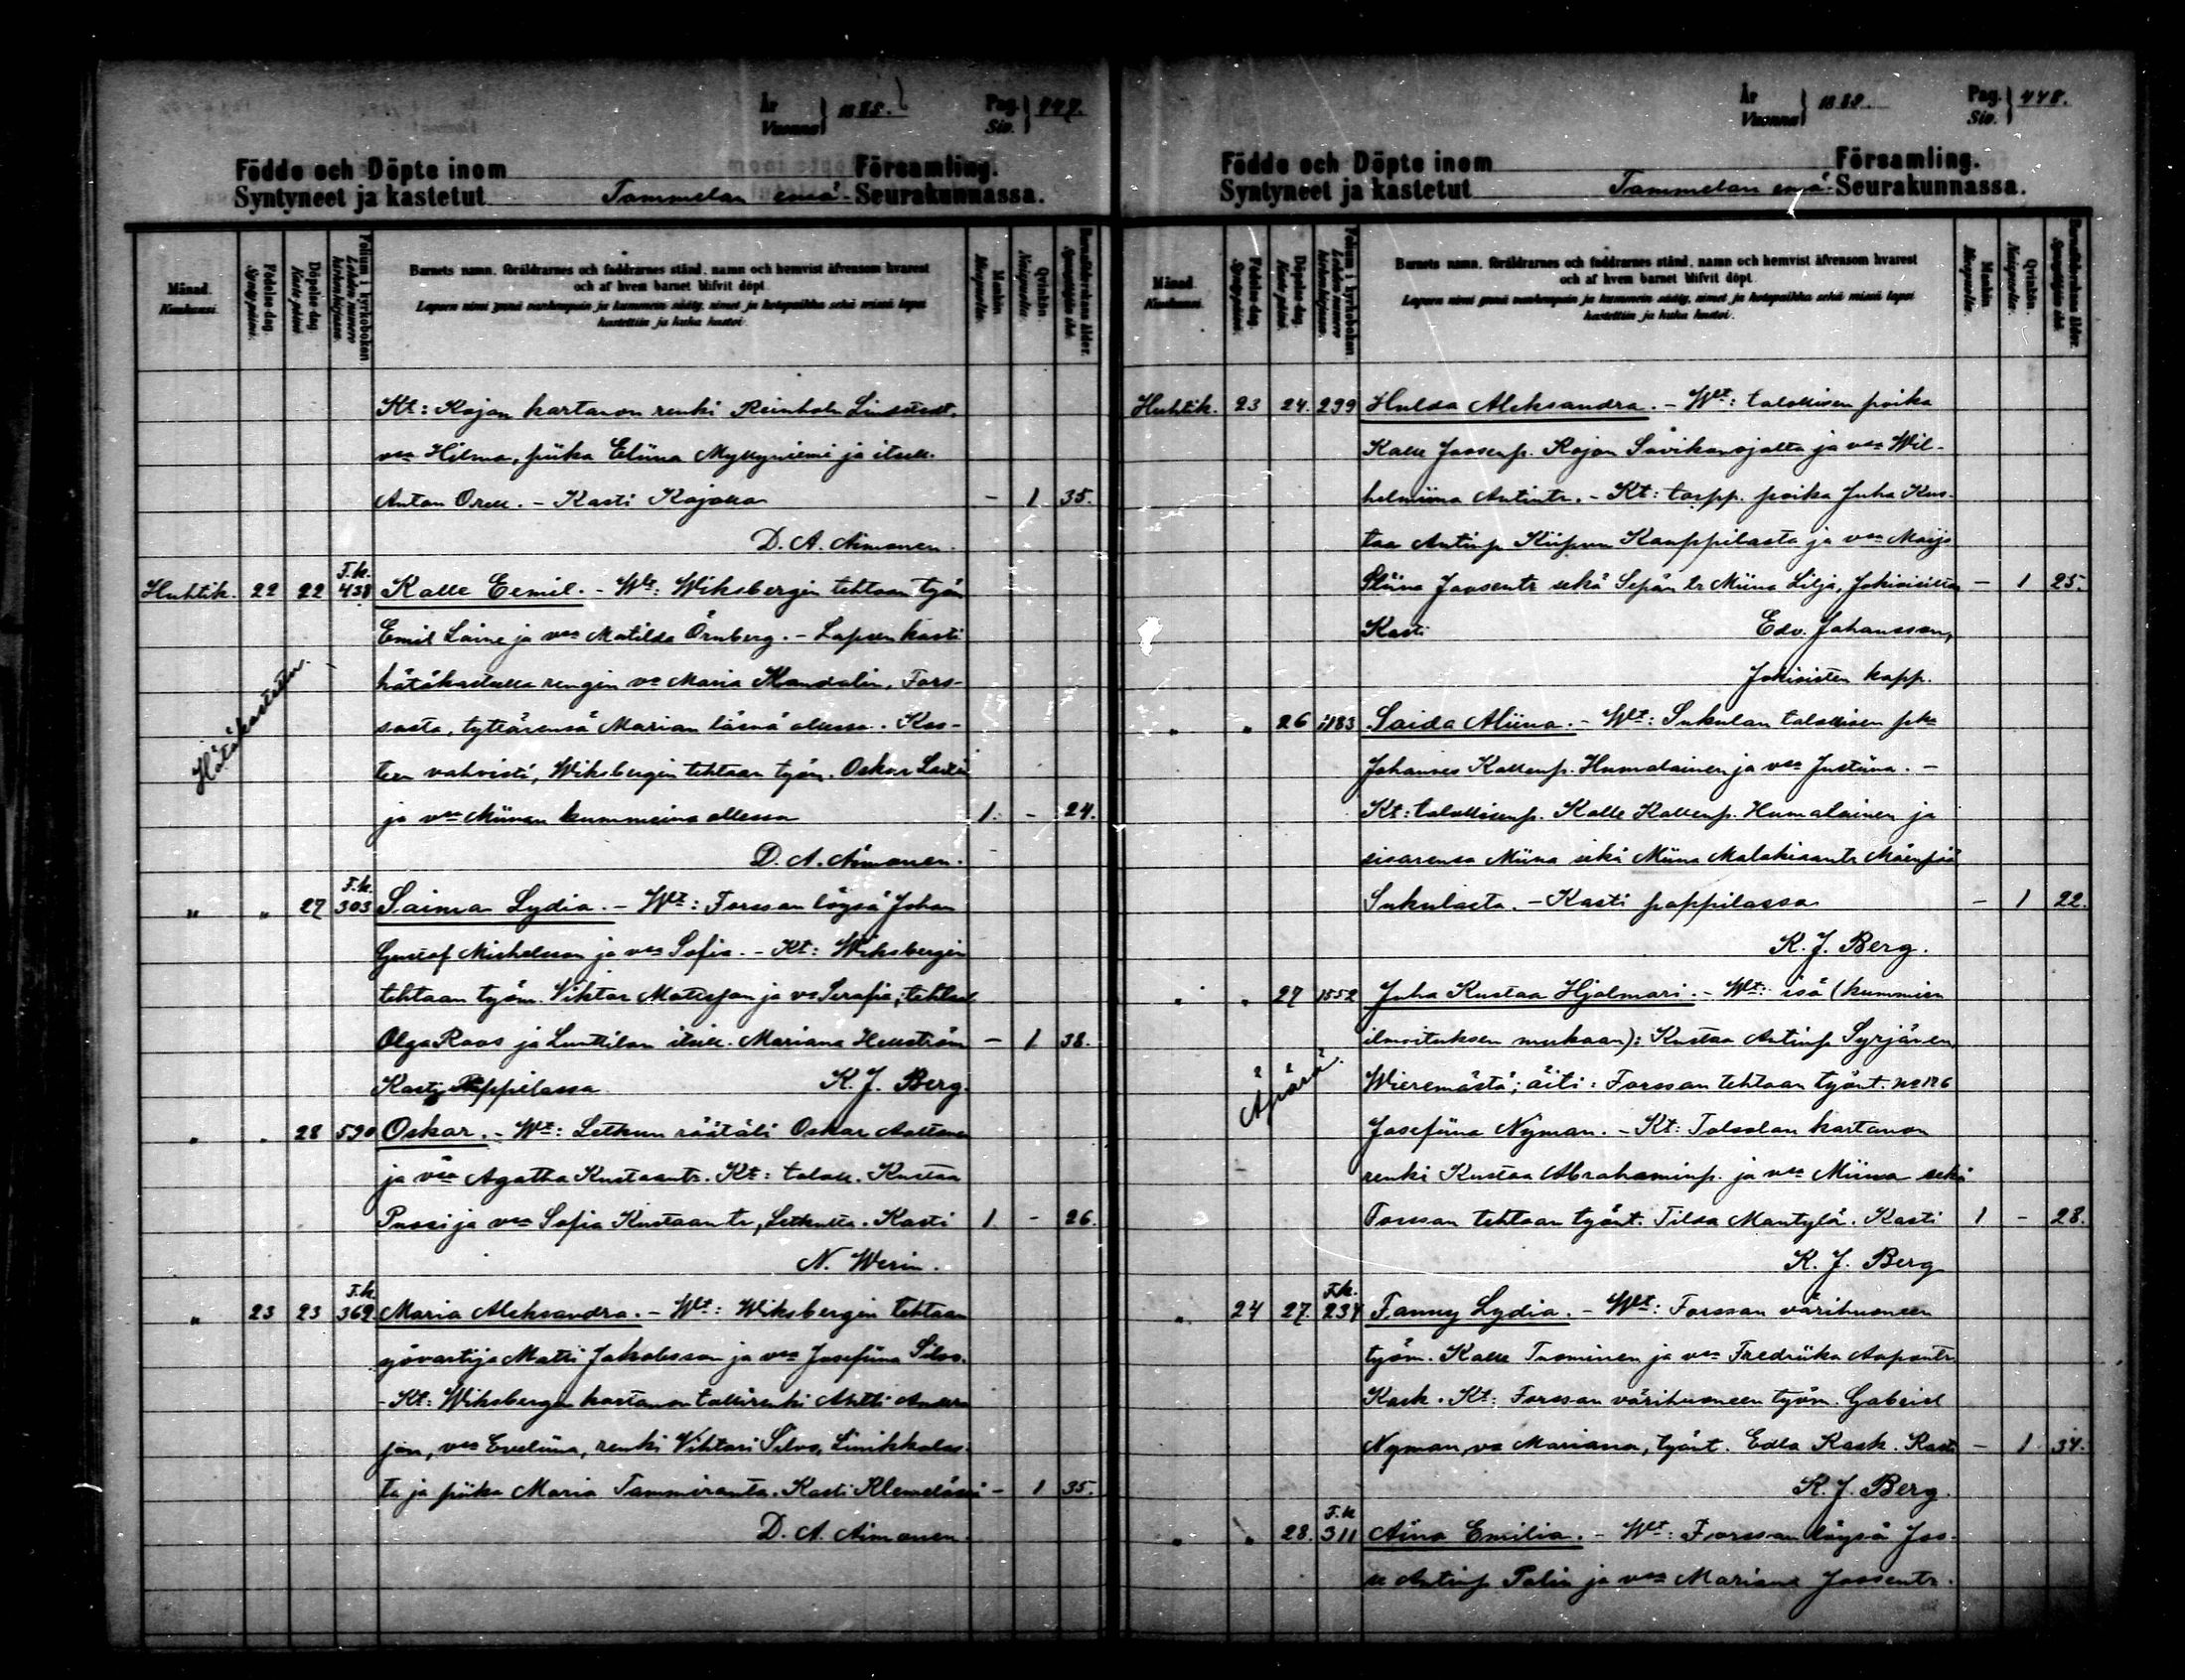 År
Vuonna } 1885.
Pag.
Siv. } 447.
Födde och Döpte inom Församling.
Syntyneet ja kastetut Tammelan emä- Seurakunnassa.
Månad.
Kuukausi.
Födelse dag.
Syntypäivä.
Döpelse dag.
Kastepäivä.
Folium i kyrkoboken
Lehden numero kirkonkirjassa.
Barnets namn, föräldrarnes och faddrarnes stånd, namn och hemvist äfvensom hvarest
och af hvem barnet blifvit döpt.
Lapsen nimi ynnä vanhempain ja kummein sääty, nimet ja kotopaikka sekä missä lapsi
kastettiin ja kuka kastoi.
Mankön.
Miespuolta.
Qvinkön.
Naispuolta.
Barnaföderskans ålder.
Synnyttäjän ikä.
Kt: Kojon kartanon renki Reinholn Lindstedt,
vaa Hilma, piika Eliina Myllyniemi ja itsell.
Anton Orell. - Kasti Kojolla - 1 35.
D. A. Aimonen.
Huhtik. 22 22 F.k. 438 Kalle Eemil. - Wt: Wiksbergin tehtaan työn
Emil Laine ja vaa Matilda Örnberg. - Lapsen kasti
hätäkasteella rengin va Maria Mandalin, Fors-
sasta, tyttärensä Marian läsnä ollessa. Kas-
teen vahvisti, Wiksbergin tehtaan työm. Oskar
ja vaa Miinan kummeina ollessa 1. - 24.
Hätäkastettu.
D. A. Aimonen.
" " 27 F.k. 303 Saima Lydia. - Wt: Forssan löysä Johan
Gustaf Michelsson ja vaa Sofia. - Kt: Wiksbergin
tehtaan työm. Viktor Matssson ja va Serafia, tehtaal.
Olga Roos ja Lunttilan itsell. Mariana Hellström - 1 38.
Kasti Pappilassa K. J. Berg.
" " 28 590 Oskar. - Wt: Letkun räätäli Oskar Aaltonen
ja vaa Agatha Kustaantr. Kt: taloll. Kustaa
Pussi ja vaa Sofia Kustaantr, Letkulta. Kasti 1 - 26.
N. Werin.
" 23 23 F.k. 362 Maria Aleksandra. - Wt: Wiksbergin tehtaan
yövartija Matti Jakobsson ja vaa Josefiina Silvo.
- Kt: Wiksbergin kartanon tallirenki Antti Anders
son, vaa Eveliina, renki Vihtori Silvo, Linikkalas-
ta ja piika Maria Tammiranta. Kasti Klemelässä - 1 35.
D. A. Aimonen.
År
Vuonna } 1889.
Pag.
Siv. } 448.
Födde och Döpte inom Församling.
Syntyneet ja kastetut Tammelan emä- Seurakunnassa.
Månad.
Kuukausi.
Födelse dag.
Syntypäivä.
Döpelse dag.
Kastepäivä.
Folium i kyrkoboken
Lehden numero kirkonkirjassa.
Barnets namn, föräldrarnes och faddrarnes stånd, namn och hemvist äfvensom hvarest
och af hvem barnet blifvit döpt.
Lapsen nimi ynnä vanhempain ja kummein sääty, nimet ja kotopaikka sekä missä lapsi
kastettiin ja kuka kastoi.
Mankön.
Miespuolta.
Qvinkön.
Naispuolta.
Barnaföderskans ålder.
Synnyttäjän ikä.
Huhtik. 23 24. 299 Hulda Aleksandra. - Wt: talollisen poika
Kalle Joosenp. Kojon Savikonojalta ja vaa Wil-
helmiina Antintr. - Kt: torpp. poika Juha Kus-
taa Antinp Kiipun Kauppilasta ja vaa Maija
Stiina Joosentr sekä Sepän tr Miina Lilja, Jokioisilta - 1 25.
Kasti Edv. Johansson,
Jokioisten kapp.
" " 26 1183 Saida Aliina. - Wt: Sukulan talollisen pka
Johannes Kallenp. Humalainen ja vaa Justiina. -
Kt: talollisenp. Kalle Kallenp. Humalainen ja
sisarensa Miina sekä Miina Malakiaantr Mäenpää
Sukulasta. - Kasti pappilassa - 1 22.
K. J. Berg.
" " 27 1552 Juha Kustaa Hjalmari. - Wt: isä (kummien
ilmoituksen mukaan): Kustaa Antinp Syrjänen
Wieremästä; äiti: Forssan tehtaan työnt. No 126
Äpärä.
Josefiina Nyman. - Kt: Tolsolan kartanon
renki Kustaa Abrahaminp. ja vaa Miina sekä
Forssan tehtaan työnt. Tilda Mäntylä. Kasti 1 - 28.
K. J. Berg
" 24 27. F.k. 234 Fanny Lydia. - Wt: Forssan värihuoneen
työm. Kalle Tuominen ja vaa Fredriika Aapontr
Kask. Kt: Forssan värihuoneen työm. Gabriel
Nyman, va Mariana, työnt. Edla Kask. Kasti - 1 34.
K. J. Berg.
" " 28. F.k. 311 Aina Emilia. - Wt: Forssan löysä Joo-
se Antinp Palin ja vaa Mariana Joosentr.